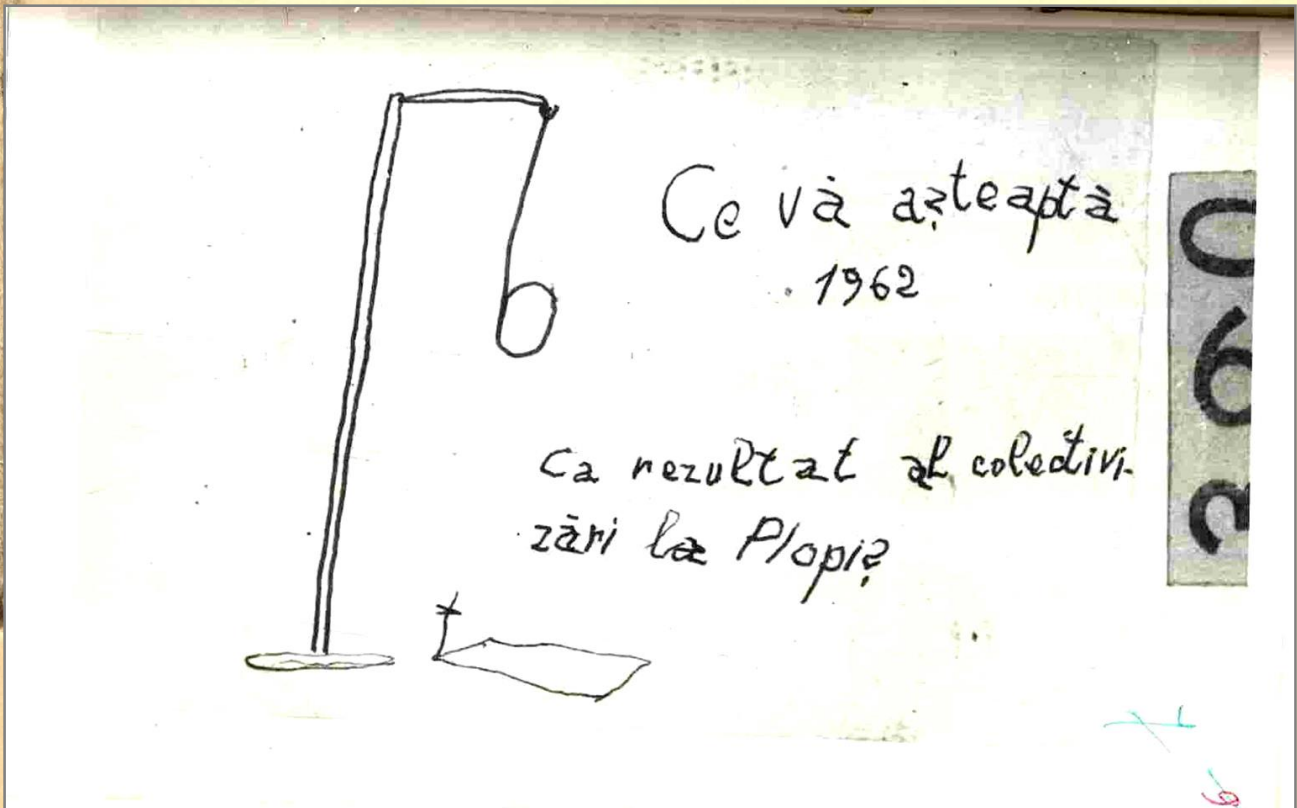 Ce vă așteaptă
1962
Ca rezultat al colectivi-
zări la Plopiș
360